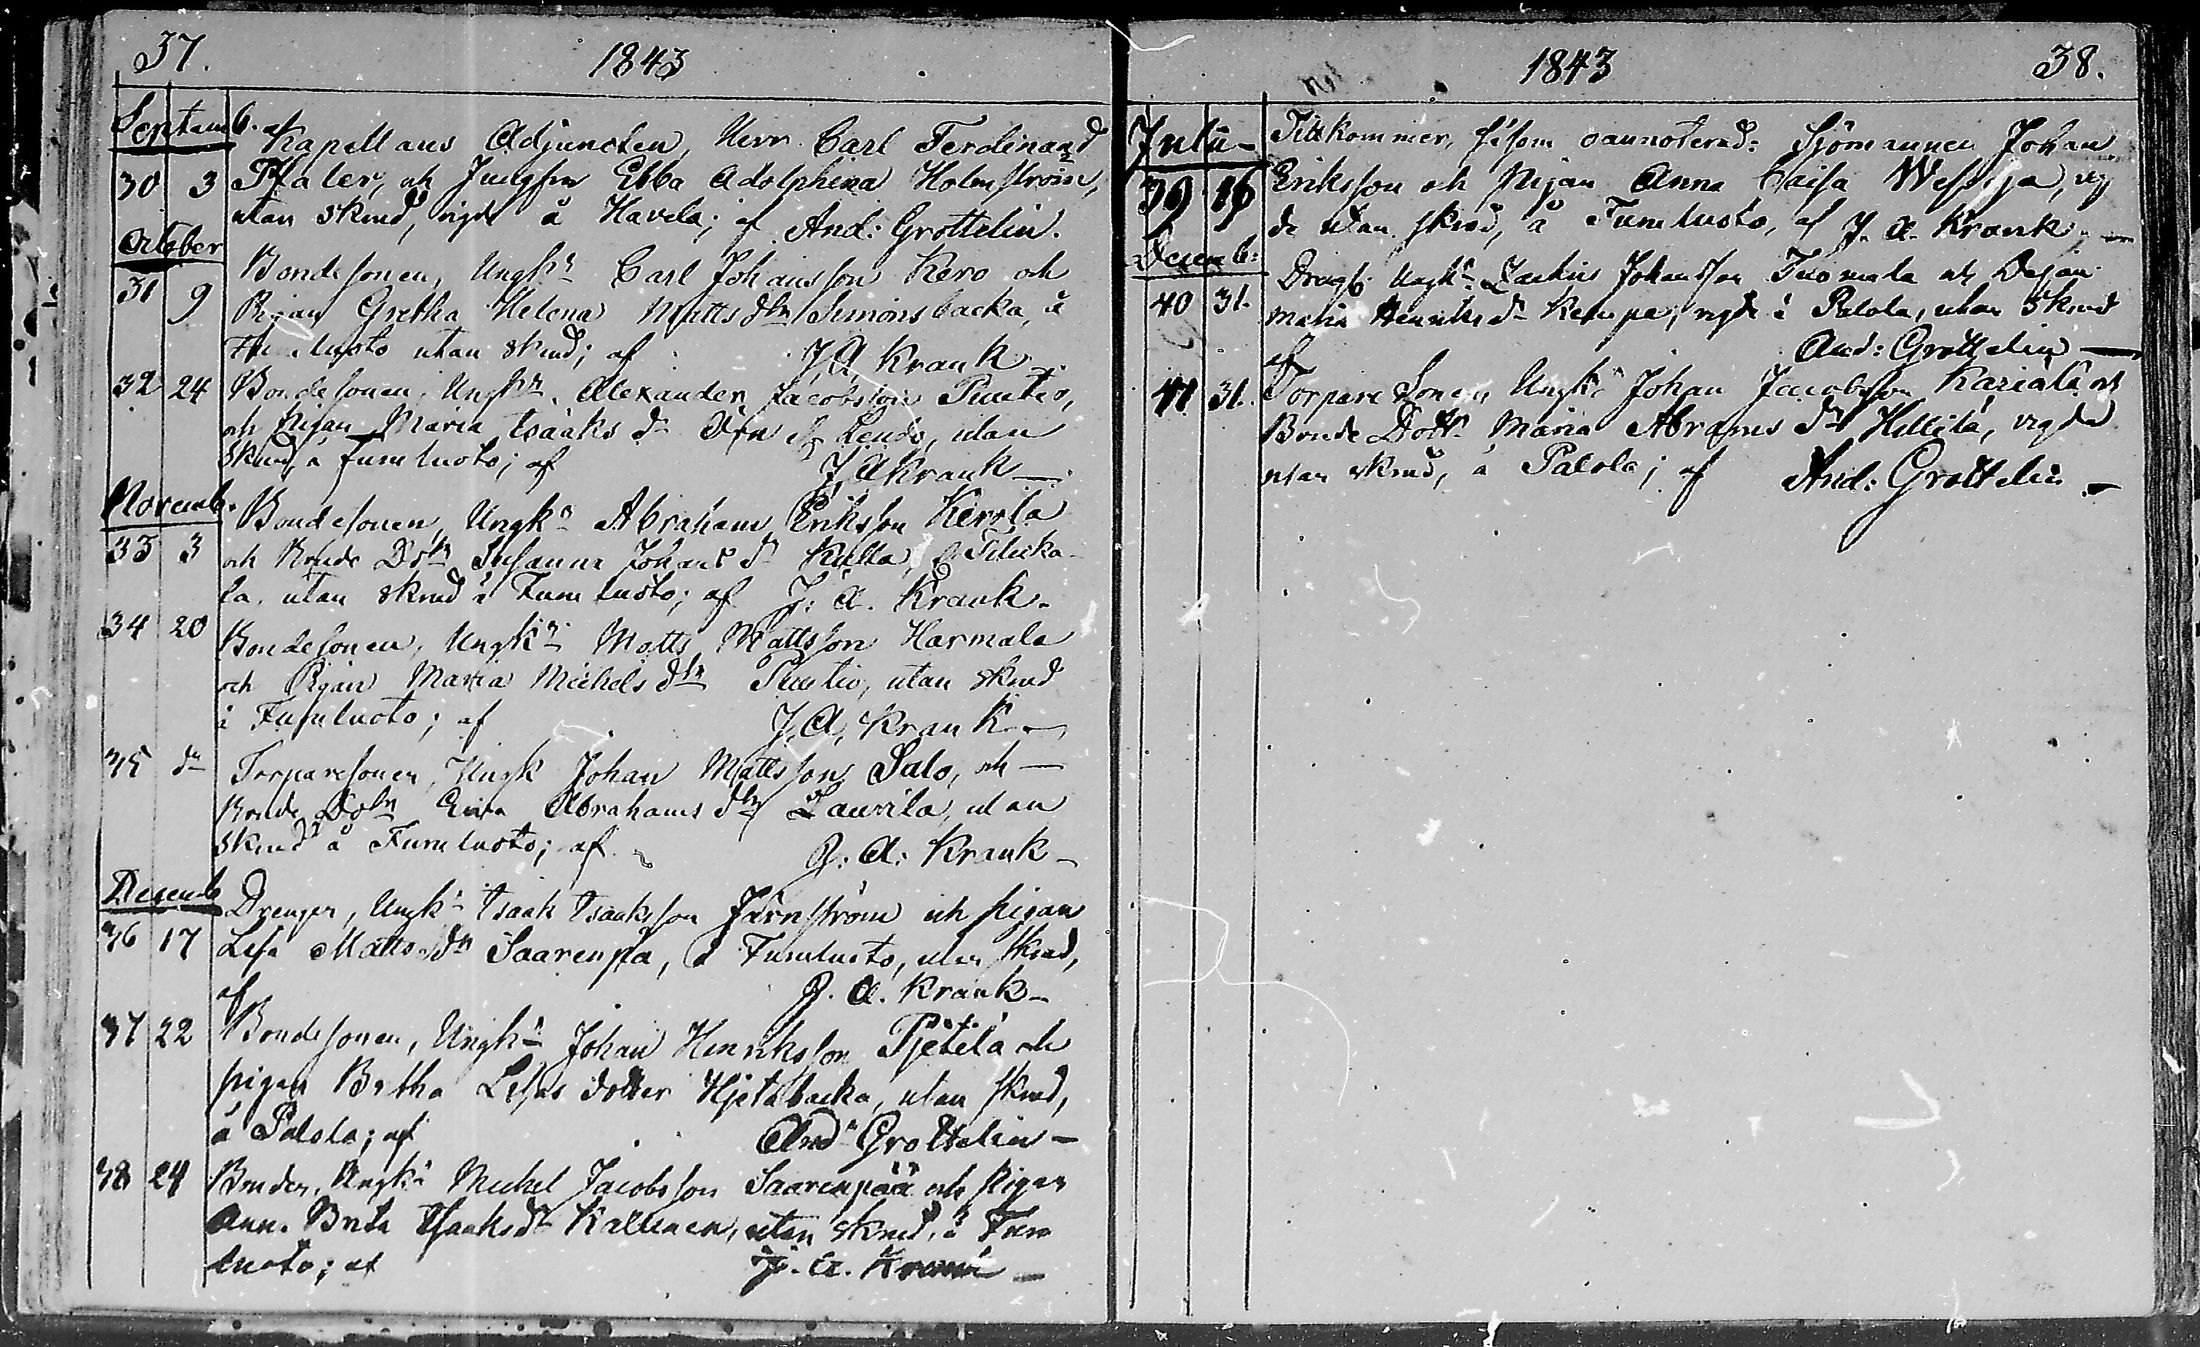 37. 1843
Septemb. af Kapellans Adjuncten, Herr Carl Ferdinand
30 3 Thaler, och Jungfru Ebba Adolphina Holmström,
utan skrud, vigde å Havela; af And: Grottelin.
October
Bondesonen, Ungkn Carl Johansson Kero och
31 9 Pigan Gretha Helena Matts dtr Simonsbacka, å
Tumluoto utan skrud; af J. A. Krank
32 24 Bondesonen, Ungkn Alexander Jacobsson Puutio,
och Pigan Maria Isaaks dr utan
skrud, å Tumluoto; af J. A. Krank —
Novemb.
Bondesonen, Ungkn Abraham Eriksson Kerola
33 3 och Bonde Dotn Susanna Johans dr Kulla,
la, utan skrud å Tumluoto; af J: A. Krank.
34 20 Bondesonen, Ungkn Matts Mattsson Harmala
och Pigan Maria Michels dtr Puutio, utan skrud
å Tumluoto; af J. A. Krank —
35 dn Torparesonen, Ungk Johan Mattsson Salo, och —
Bonde Dotn Abrahams dtr Laurila, utan
skrud å Tumluoto; af J: A: Krank —
Decemb
Drengen, Ungkn Isaak Isaaksson Järnström och pigan
36 17 Lisa Matts dtr Saarenpä, å Tumluoto, utan skrud,
af J. A. Krank —
37 22 Bondesonen, Ungkn Johan Henriksson Pjetilä och
pigan Bretha dotter Hjetabacka, utan skrud,
å Palola; af And: Grottelin —
38 24 Bonden, Ungkn Mickel Jacobsson Saarenpää och Pigan
Anna Brita Isaaksdr Kallinen, utan skrud, å Tum
luoto; af J. A. Krank —
1843 38.
Julii — Tillkommer, såsom oannoterad: Sjömannen Johan
39 16 Eriksson och Pigan Anna Caisa vig
de utan skrud, å Tumluoto, af J. A. Krank. —
Decemb:
Dreng, Ungkn Zachris Johansson Tuomala och Pigan
40 31. Maria Henriks dr Kempe, vigde å Palola, utan skrud
af And: Grottelin —
41 31. Torpare Sonen, Ungkn Johan Jacobsson Kariala och
Bonde Dottn Maria Abrams dr Hellilä, vigda
utan skrud, å Palola; af And: Grottelin —